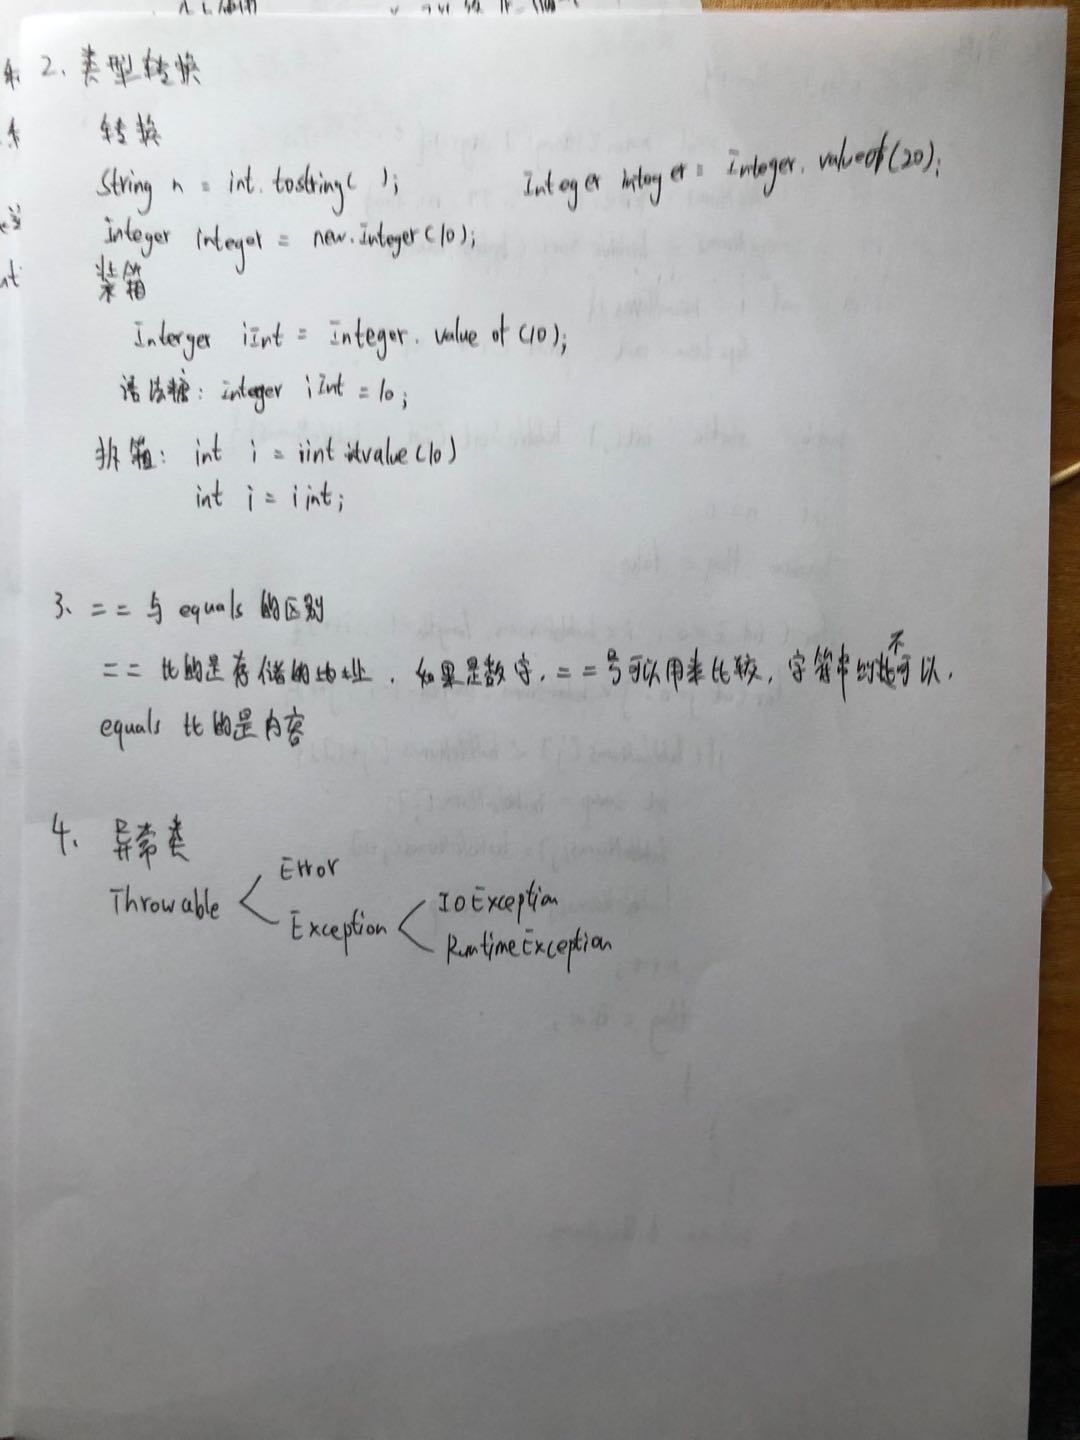 2、类型转换
转换
String n = int. tostring( );
Integer integer = Integer. valueof(20);
Integer integer = new. Integer(10);
装箱
Interger iInt = Integer. value of (10);
语法糖: integer iInt = 10;
拆箱: int i = iint value(10)
int i = iint;
3、== 与 equals 的区别
== 比的是存储的地址, 如果是数字, ==号可以用来比较, 字符串的不可以.
equals 比的是内容
4、异常类
Throwable
Error
Exception
IOException
RuntimeException